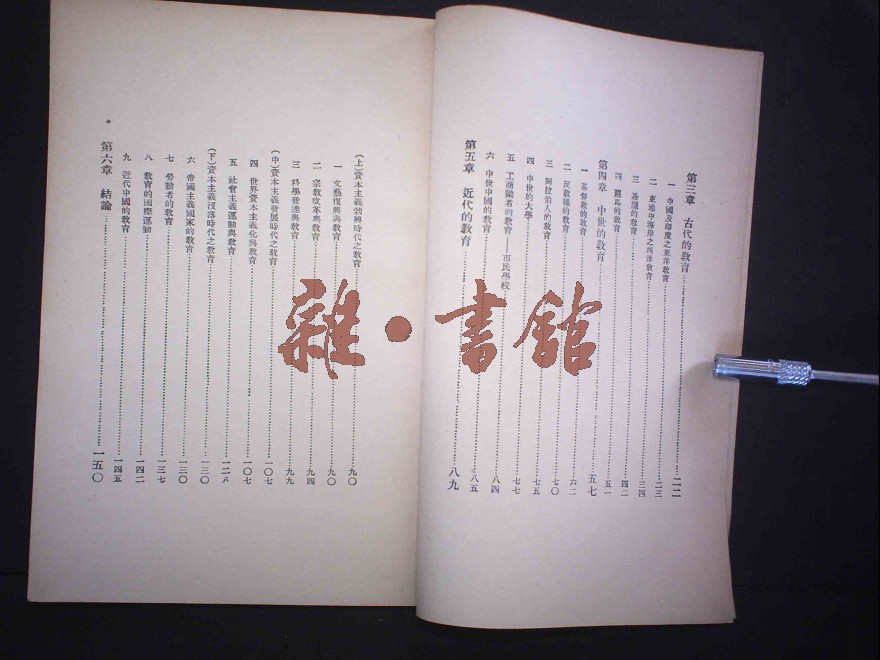 第三章 古代的教育……二二
一 中國及印度之東洋教育……二三
二 東地中海岸之西洋教育……三四
三 希臘的教育……四二
四 羅馬的教育……五一
第四章 中世的教育……五七
一 基督教的教育……六二
二 反教權的教育……七〇
三 阿拉伯人的教育……七五
四 中世的大學……七七
五 工商階者的教育——市民學校……八四
六 中世中國的教育……八五
第五章 近代的教育……八九
(上)資本主義勃興時代之教育……九〇
一 文藝復興與教育……九〇
二 宗教改革與教育……九四
三 科學發達與教育……九九
(中)資本主義發展時代之教育……一〇七
四 世界資本主義化與教育……一〇七
五 社會主義運動與教育……一二八
(下)資本主義沒落時代之教育……一三〇
六 帝國主義國家的教育……一三〇
七 勞動者的教育……一三七
八 教育的國際運動……一四二
九 近代中國的教育……一四五
第六章 結論……一五〇
雜·書館